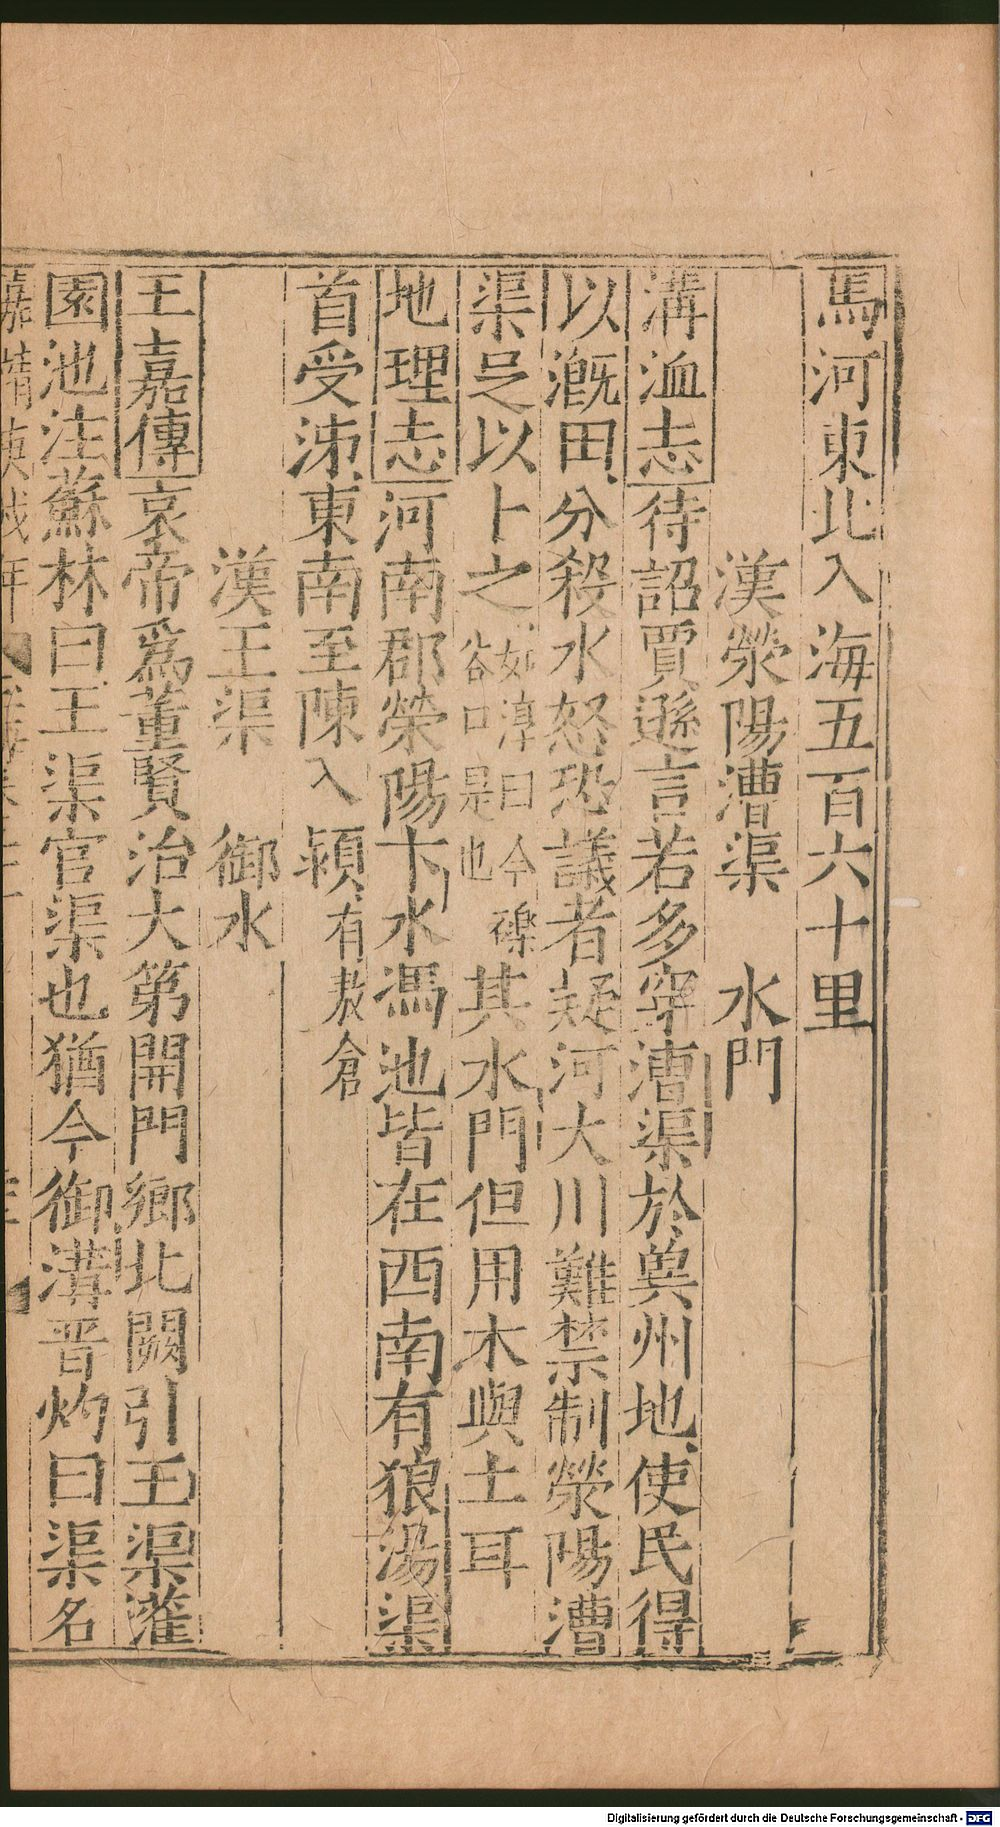 馬河東北入海五百六十里
漢滎陽漕渠　水門
溝洫志待詔賈遜言若多穿漕渠於兾州地使民得
以溉田分殺水怒恐議者疑河大川難禁制滎陽漕
渠足以卜之如淳曰今礫谷口是也其水門但用木與土耳
地理志河南郡滎陽卞水馮池皆在西南有狼湯渠
首受泲東南至陳入潁有敖倉
漢王渠　御水
王嘉傳哀帝爲董賢治大第開門鄉北闕引王渠灌
園池注蘇林曰王渠官渠也猶今御溝晋灼曰渠名
Digitalisierung gefördert durch die Deutsche Forschungsgemeinschaft - DFG